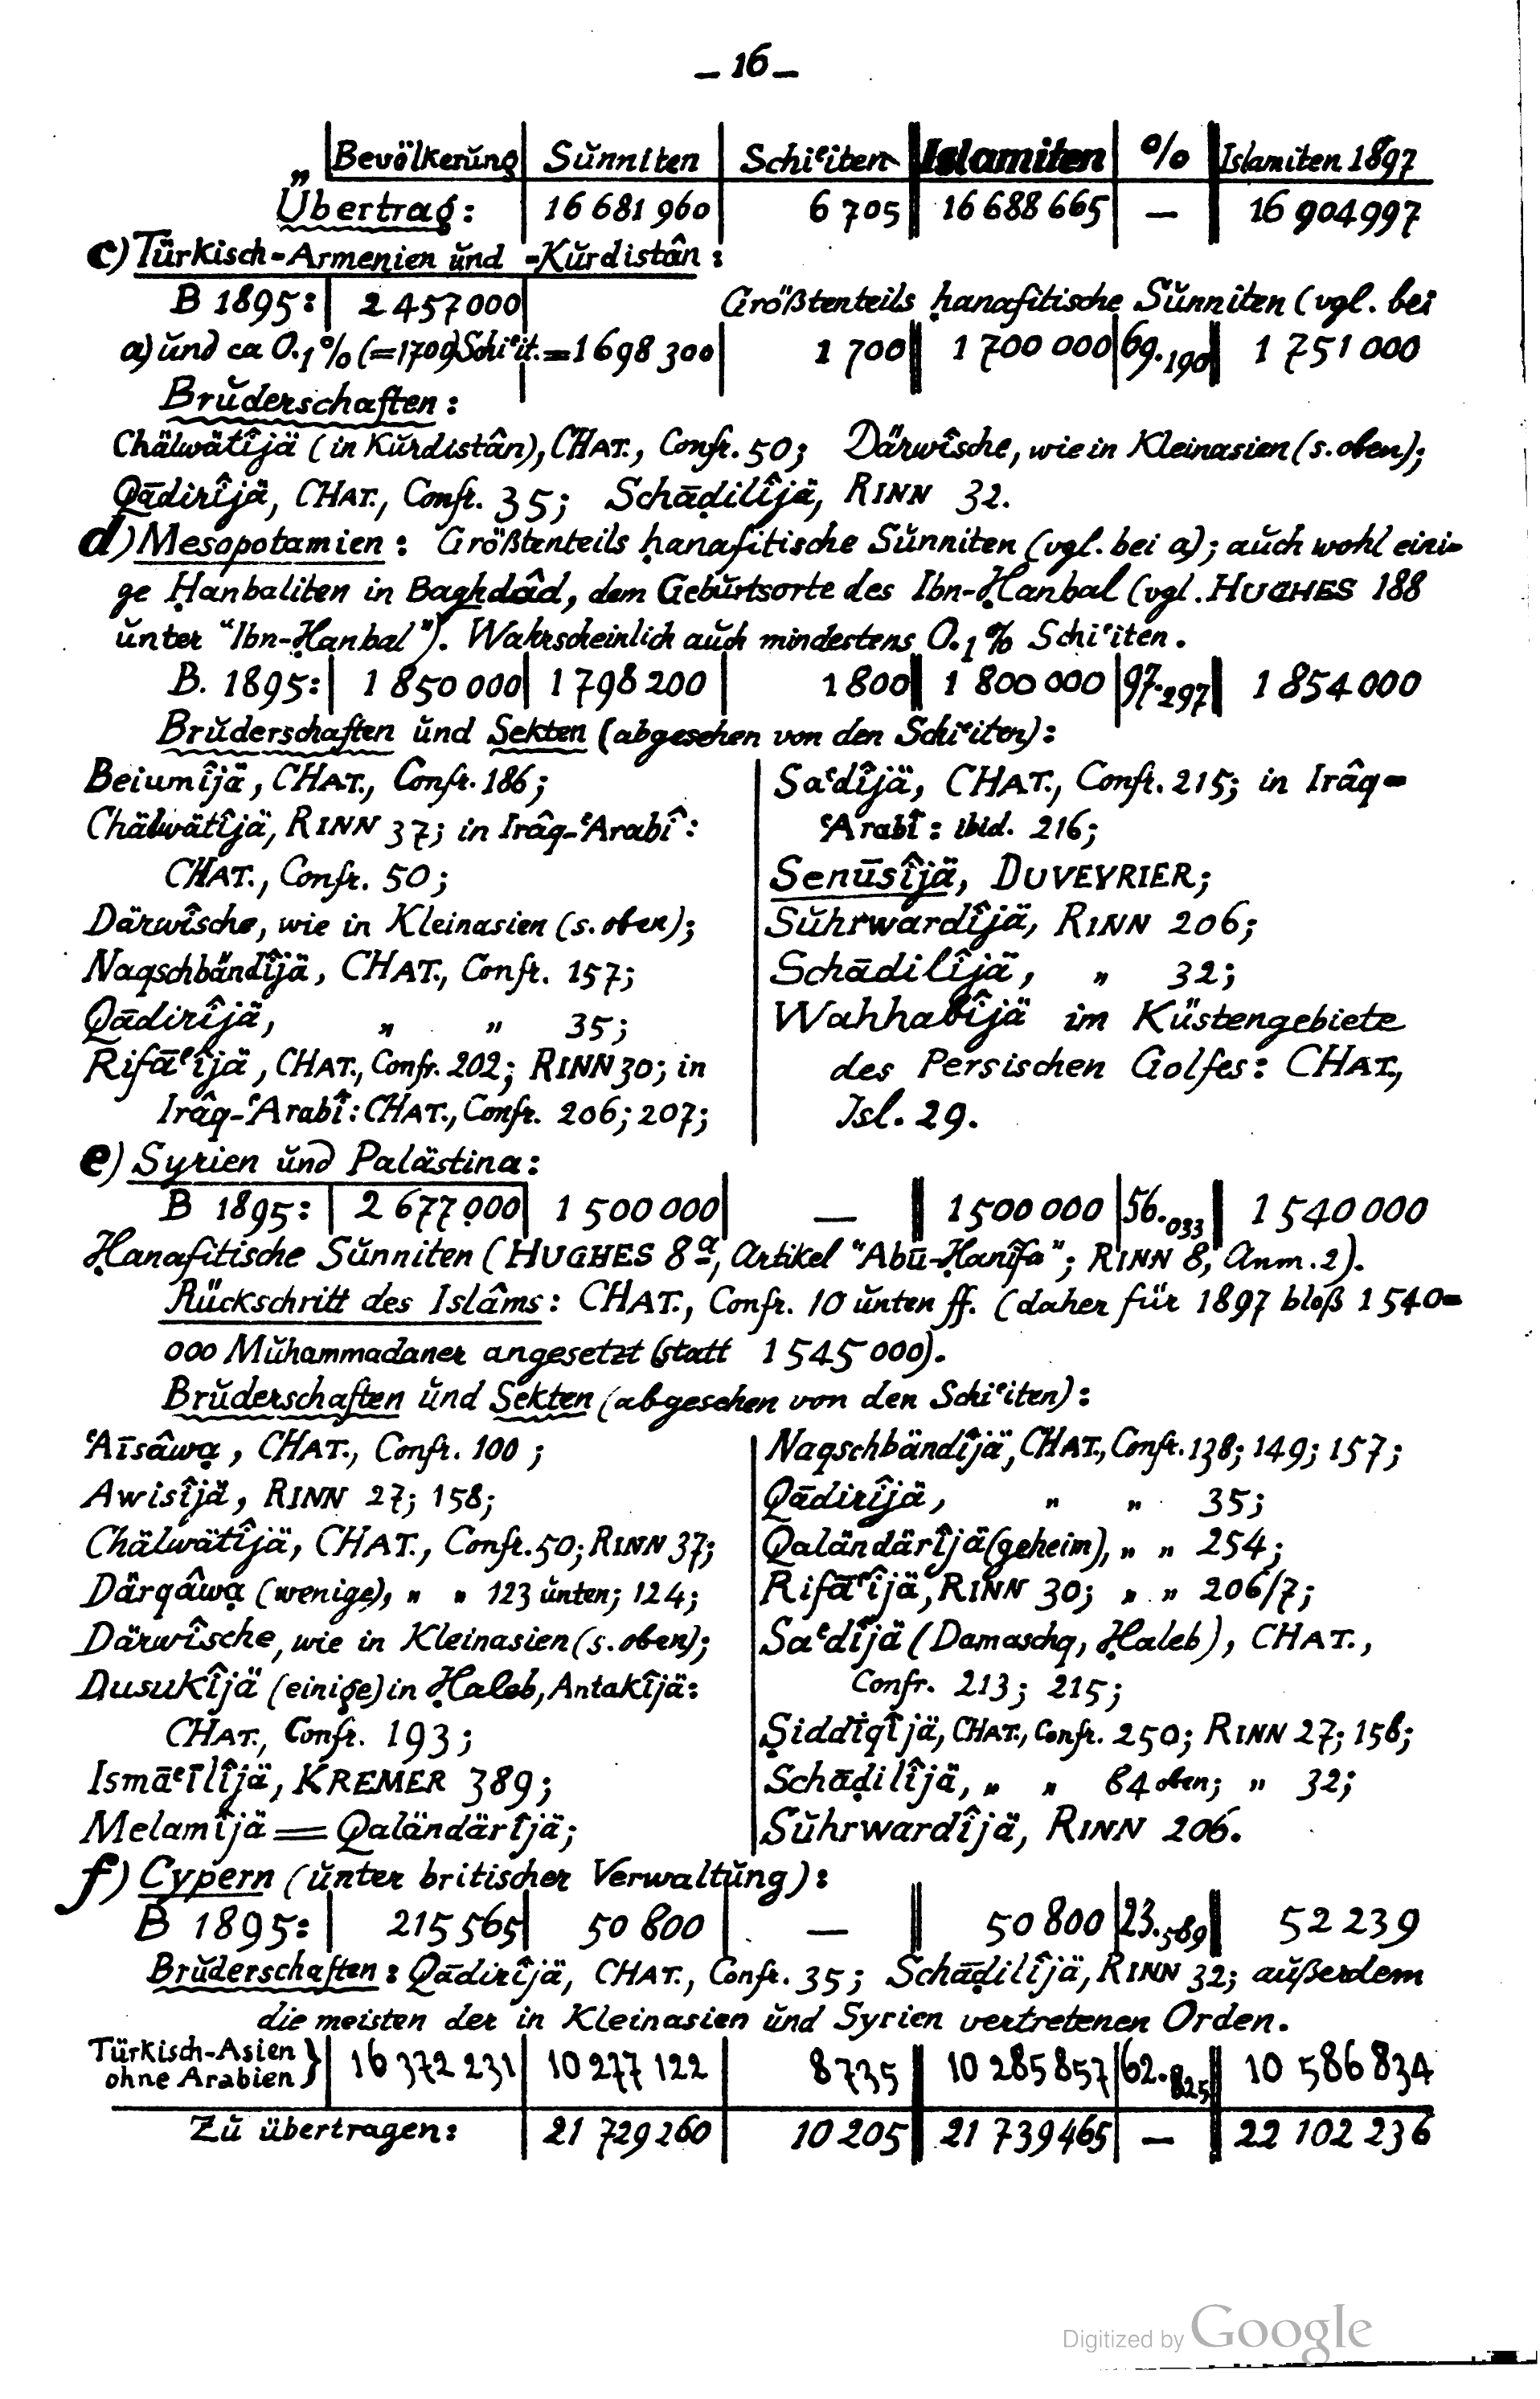 – 16 –
Bevölkerung | Sŭnniten | Schiʿiten | Islamiten | % | Islamiten 1897
Übertrag: | 16 681 960 | 6 705 | 16 688 665 | — | 16 904 997
c) Türkisch-Armenien ŭnd -Kŭrdistân:
B 1895: | 2 457 000 | Größtenteils ḥanafitische Sŭnniten (vgl. bei
a) ŭnd ca 0.1% (=1700) Schiʿit. = 1 698 300 | 1 700 | 1 700 000 | 69.190 | 1 751 000
Brŭderschaften:
Chälwätîjä (in Kŭrdistân), CHAT., Confr. 50; Därwîsche, wie in Kleinasien (s. oben);
Qādirîjä, CHAT., Confr. 35; Schāḍilîjä, RINN 32.
d) Mesopotamien: Größtenteils ḥanafitische Sŭnniten (vgl. bei a); aŭch wohl eini-
ge Ḥanbaliten in Baghdâd, dem Gebŭrtsorte des Ibn-Ḥanbal (vgl. HUGHES 188
ŭnter "Ibn-Ḥanbal"). Wahrscheinlich aŭch mindestens 0.1% Schiʿiten.
B. 1895: | 1 850 000 | 1 798 200 | 1 800 | 1 800 000 | 97.297 | 1 854 000
Brŭderschaften ŭnd Sekten (abgesehen von den Schiʿiten):
Beiumîjä, CHAT., Confr. 186;
Chälwätîjä, RINN 37; in Irâq-ʿArabî:
CHAT., Confr. 50;
Därwîsche, wie in Kleinasien (s. oben);
Naqschbändîjä, CHAT., Confr. 157;
Qādirîjä, " " 35;
Rifāʿîjä, CHAT., Confr. 202; RINN 30; in
Irâq-ʿArabî: CHAT., Confr. 206; 207;
Saʿdîjä, CHAT., Confr. 215; in Irâq-
ʿArabî: ibid. 216;
Senūsîjä, DUVEYRIER;
Sŭhrwardîjä, RINN 206;
Schādilîjä, " 32;
Wahhabîjä im Küstengebiete
des Persischen Golfes: CHAT.,
Isl. 29.
e) Syrien ŭnd Palästina:
B 1895: | 2 677 000 | 1 500 000 | — | 1 500 000 | 56.033 | 1 540 000
Ḥanafitische Sŭnniten (HUGHES 8ª, Artikel "Abū-Ḥanīfa"; RINN 8, Anm. 2).
Rückschritt des Islâms: CHAT., Confr. 10 ŭnten ff. (daher für 1897 bloß 1 540-
000 Mŭhammadaner angesetzt (statt 1 545 000).
Brŭderschaften ŭnd Sekten (abgesehen von den Schiʿiten):
ʿAīsâwạ, CHAT., Confr. 100;
Awisîjä, RINN 27; 158;
Chälwätîjä, CHAT., Confr. 50; RINN 37;
Därqâwạ (wenige), " " 123 ŭnten; 124;
Därwîsche, wie in Kleinasien (s. oben);
Dusukîjä (einige) in Ḥaleb, Antakîjä:
CHAT., Confr. 193;
Ismāʿīlîjä, KREMER 389;
Melamîjä = Qaländärîjä;
Naqschbändîjä, CHAT., Confr. 138; 149; 157;
Qādirîjä, " " 35;
Qaländärîjä (geheim), " " 254;
Rifāʿîjä, RINN 30; " " 206/7;
Saʿdîjä (Damaschq, Ḥaleb), CHAT.,
Confr. 213; 215;
Ṣiddīqîjä, CHAT., Confr. 250; RINN 27; 158;
Schāḍilîjä, " " 84 oben; " 32;
Sŭhrwardîjä, RINN 206.
f) Cypern (ŭnter britischer Verwaltŭng):
B 1895: | 215 565 | 50 800 | — | 50 800 | 23.589 | 52 239
Brŭderschaften: Qādirîjä, CHAT., Confr. 35; Schāḍilîjä, RINN 32; außerdem
die meisten der in Kleinasien ŭnd Syrien vertretenen Orden.
Türkisch-Asien
ohne Arabien } | 16 372 231 | 10 277 122 | 8 735 | 10 285 857 | 62.825 | 10 586 834
Zŭ übertragen: | 21 729 260 | 10 205 | 21 739 465 | — | 22 102 236
Digitized by Google